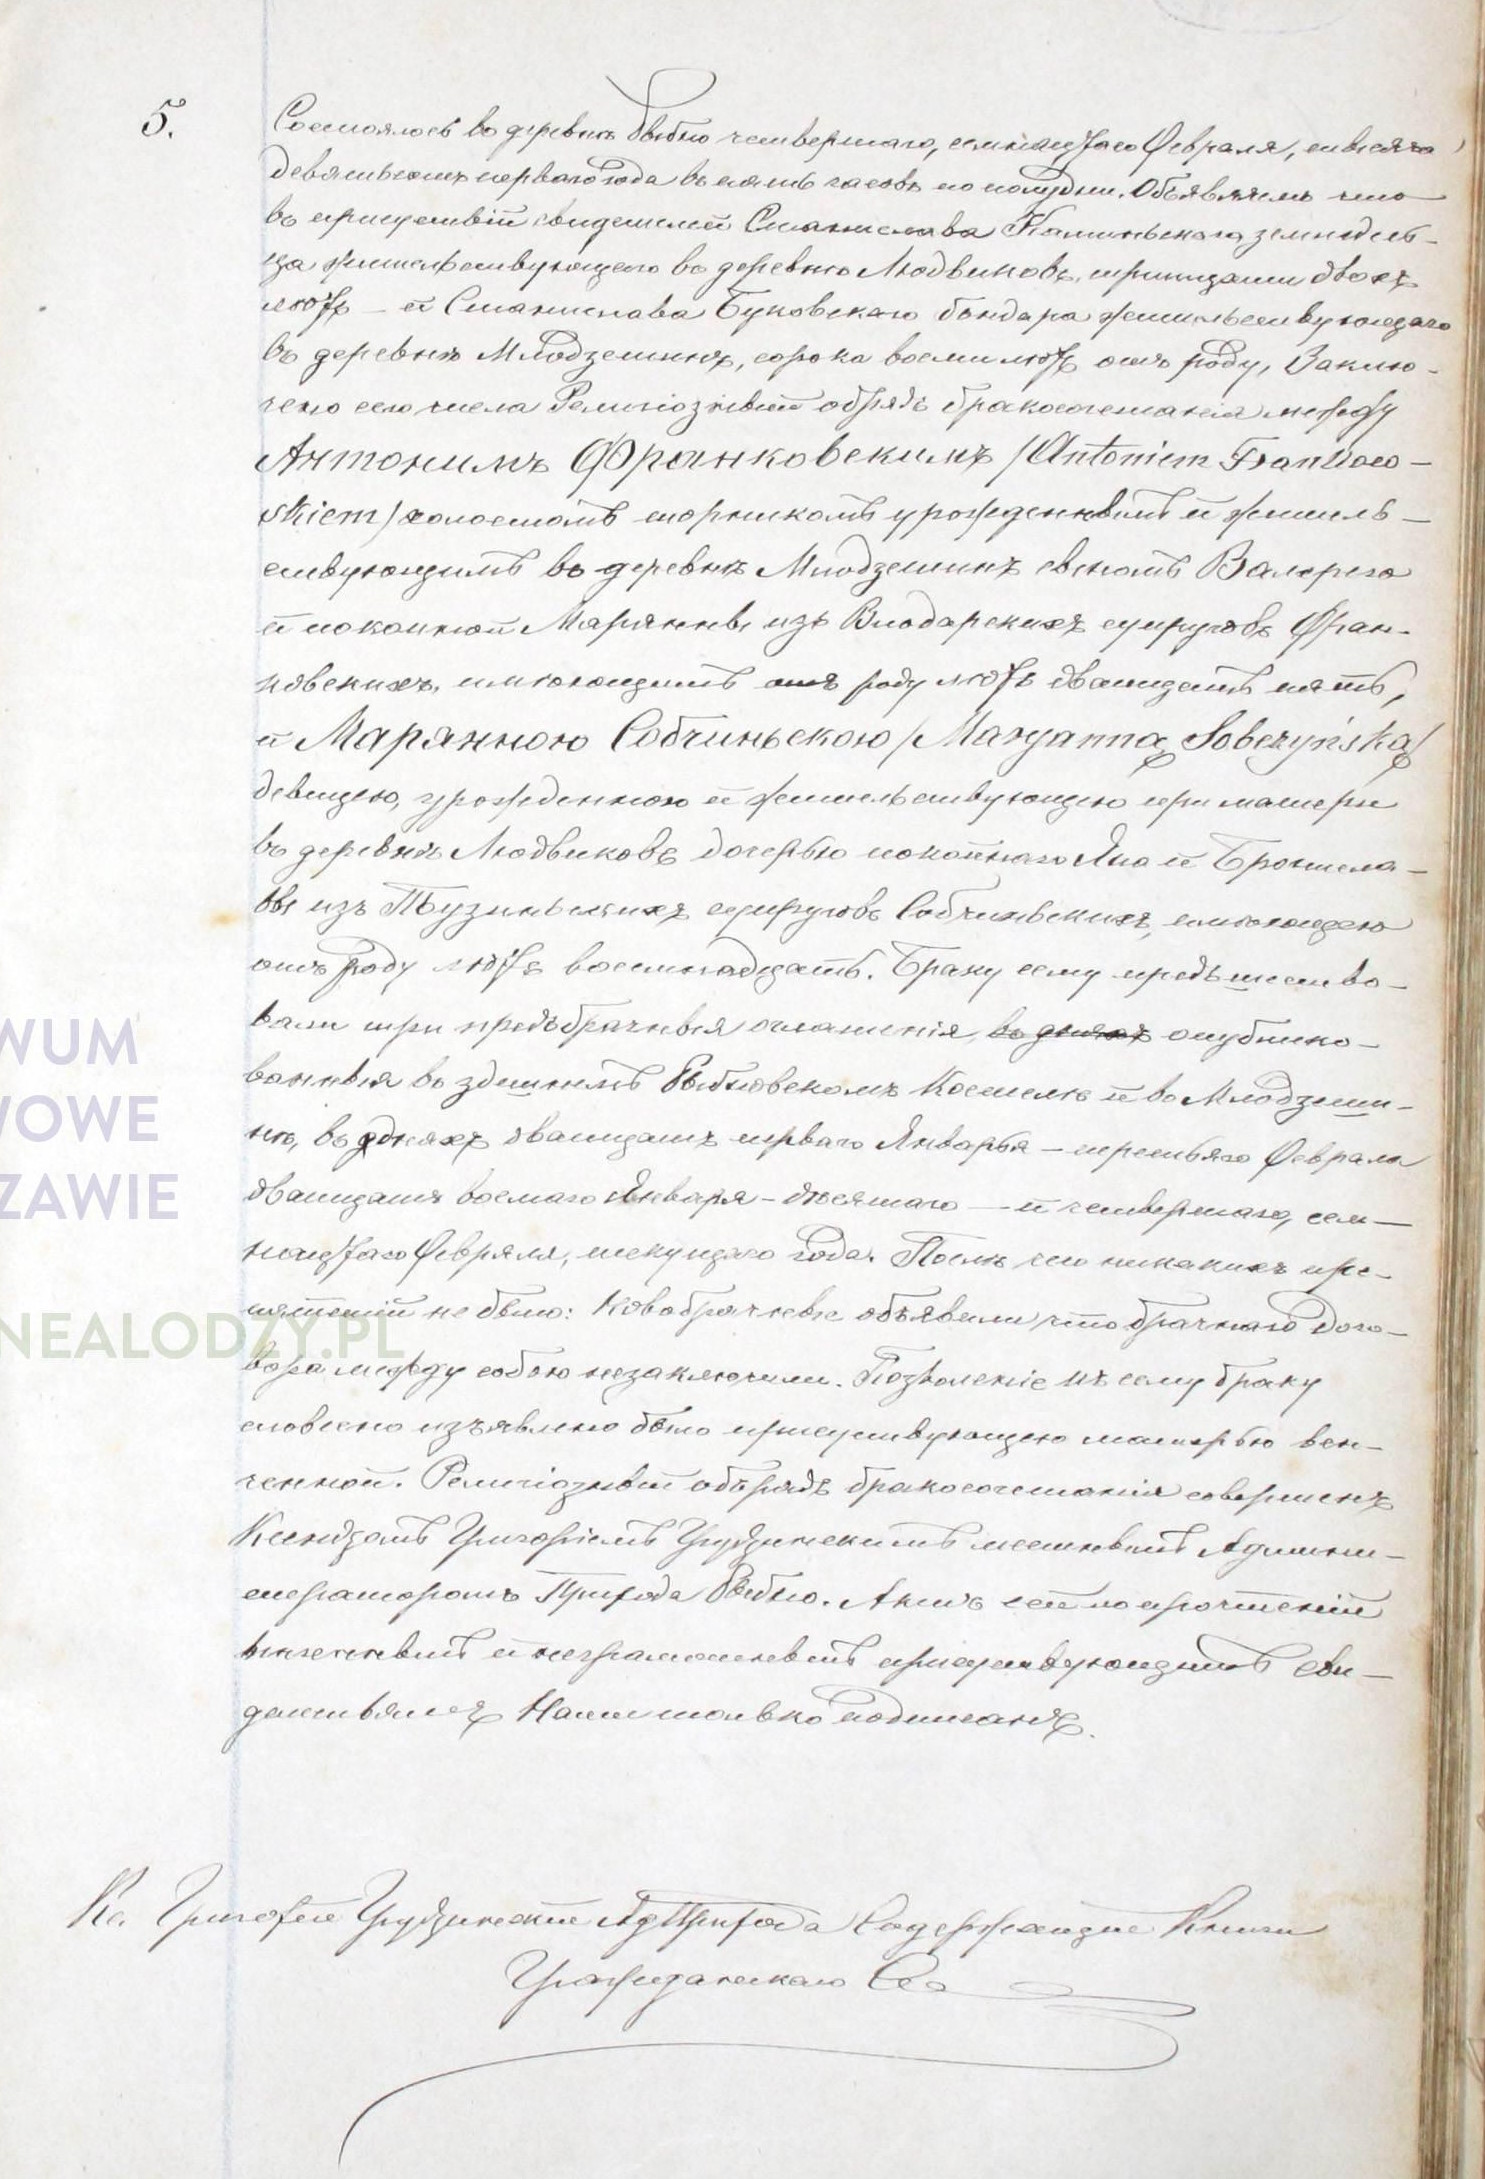 5.
Состоялось въ деревнѣ Рыбно четвертаго, семнацатаго Февраля, тысяча
девятьсотъ перваго года въ пять часовъ по полудни. Объявляемъ что
въ присутствій свидетелей Станислава Каминьскаго земледѣль-
ца жительствующаго въ деревнѣ Людвиковѣ, тридцати двохъ
лѣтъ – и Станислава Буковскаго бондара жительствующаго
въ деревнѣ Млодзешинѣ, сорока восми лѣтъ отъ роду, Заклю-
чено сего числа Религіозный обрядъ бракосочетанія между
Антонимъ Франковскимъ /Antoniem Frankow-
skiem/ холостомъ урожденнымъ и житель-
ствующимъ въ деревнѣ Млодзешинѣ сыномъ Валерего
и покойной Марянны изъ Влодарскихъ супруговъ Фран-
ковскихъ, имѣющимъ отъ роду лѣтъ двадцать пять,
и Марянною Собчиньскою /Maryanną Sobczyńską/
девицею, урожденною и жительствующею при матери
въ деревнѣ Людвиковѣ дочерью покойнаго Яна и Бронисла-
вы изъ супруговъ Собчиньскихъ, имѣющею
отъ роду лѣтъ восемнадцать. Браку сему предъшество-
вали три предъбрачныя оглашенія, въ дняхъ опублико-
ванныя въ здешнемъ Рыбновскомъ Костелѣ и въ Млодзеши-
нѣ, въ дняхъ двадцать перваго Января – третьяго Февраля
двадцать восмаго Января – десятаго – и четвертаго, сем-
нацатаго Февраля, текущаго года. никакихъ пре-
пятствій не было: Новобрачные объявили что брачнаго дого-
вора между собою незаключили. Позволеніе къ сему браку
словесно изъявлено было присутствующею матерью вен-
ченной. Религіозный обърядъ бракосочетанія совершенъ
Ксендзомъ Григоріемъ Грудзинскимъ местнымъ Админи-
страторомъ Прихода Рыбно. Актъ сей по прочтеній
и неграмотнымъ присутствующимъ сви-
дательямъ Нами только подписанъ.
Кс. Григорій Грудзинскій Ад Прихода Содержащие Книги
Гражданскаго Со
WUM
WOWE
ZAWIE
NEALODZY.PL